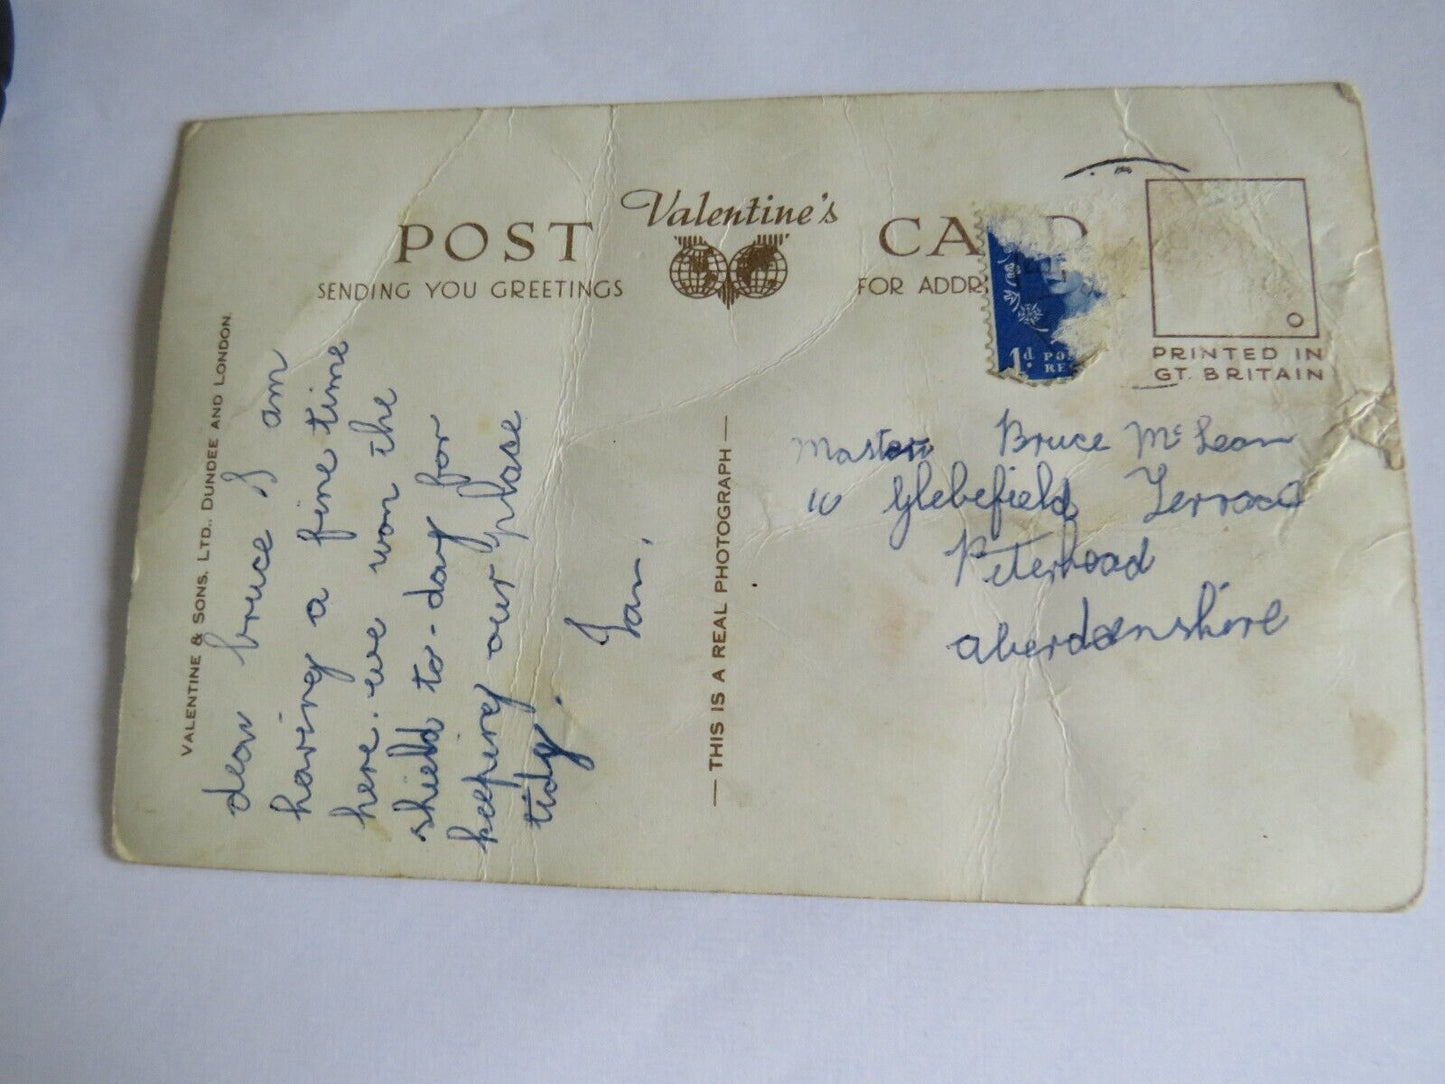 POST Valentine's CA D
SENDING YOU GREETINGS
FOR ADDR
VALENTINE & SONS, LTD., DUNDEE AND LONDON.
dear bruce I am
having a fine time
here. we won the
shield to-day for
keeping our plase
tidy.
Ian.
— THIS IS A REAL PHOTOGRAPH —
1d. PO
RE
PRINTED IN
GT. BRITAIN
Master Bruce McLean
10 Glebefield Terrace
Peterhead
aberdeenshire